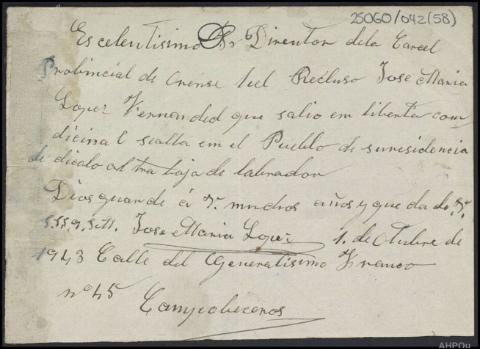 25060/042(58)
Escelentisimo Sr Direntor dela Carcel
Probincial de Orense l el Recluso Jose Maria
Lopez Fernanded que salio em liberta con
dicinal sealla em el Pueblo de suresidencia
de dicalo al trabajo de labrador
Dios guarde á v. muchos años y queda de v.
s.s.s.q. Jose Maria Lopez 1. de Otubre de
1943 Calle del Generalisimo Franco
nº 45 Campobeceros
AHPOu